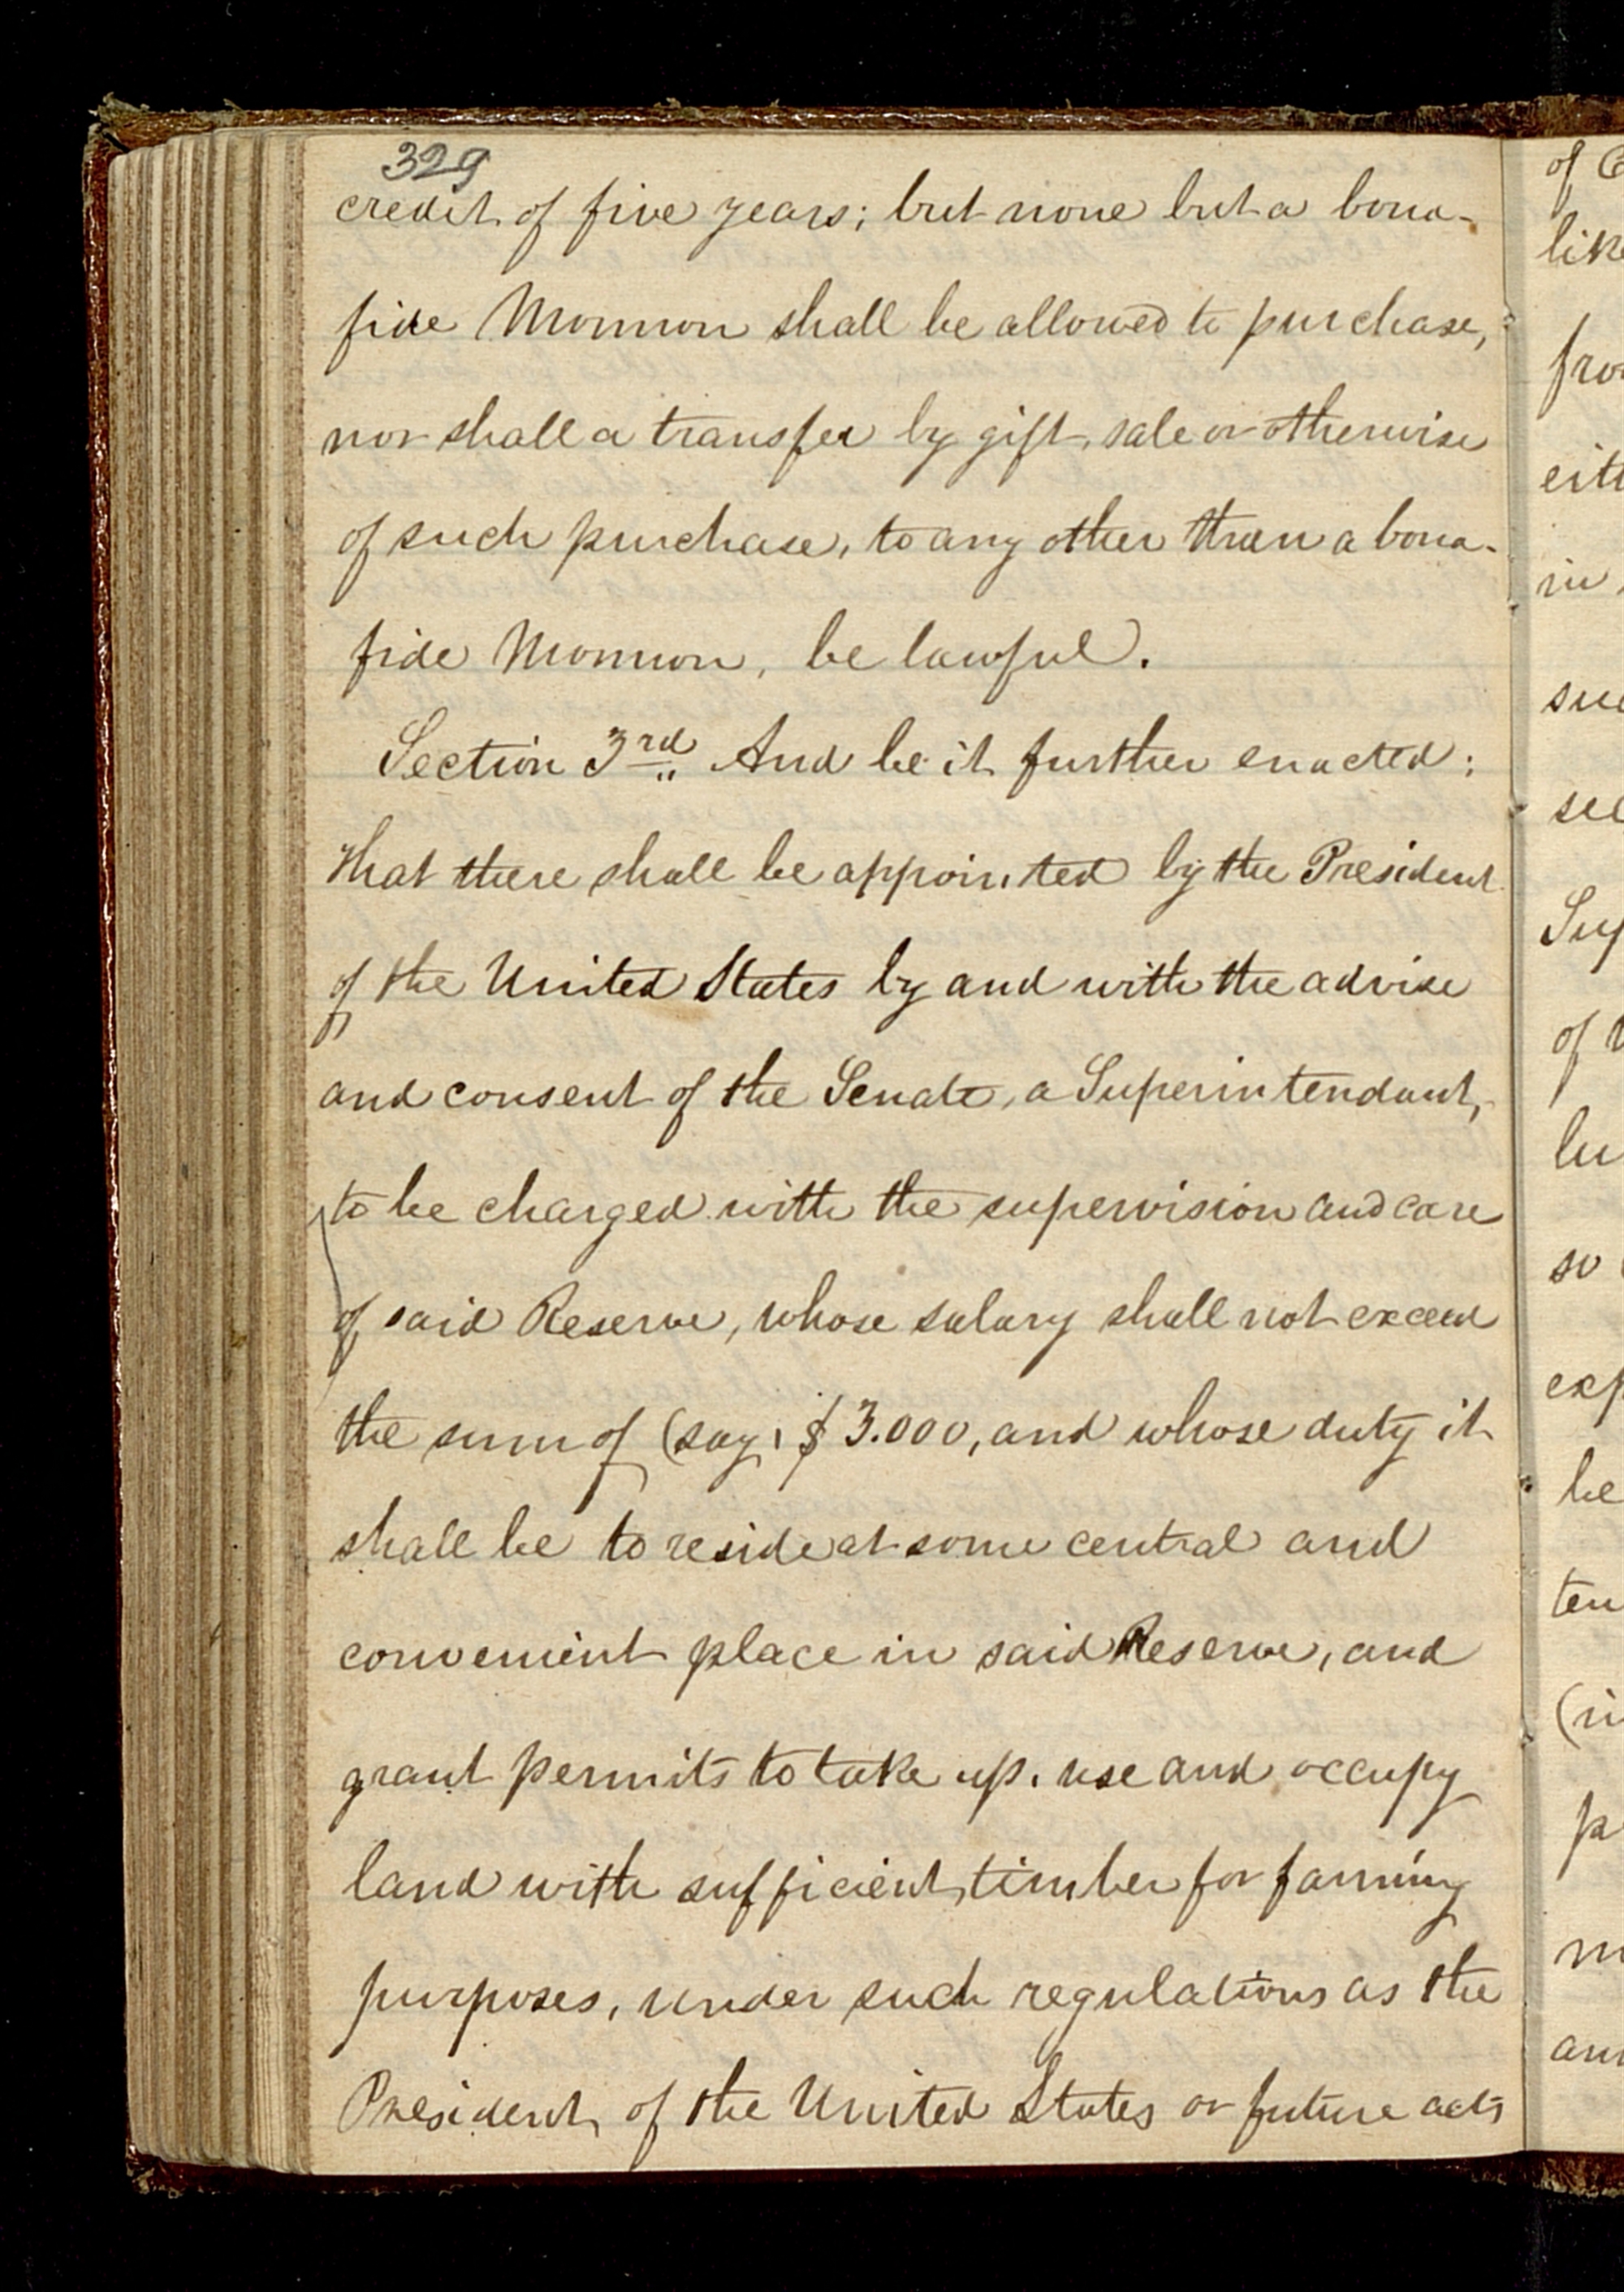 329
credit of five years; but none but a bona-
fide Mormon shall be allowed to purchase,
nor shall a transfer by gift, sale or otherwise
of such purchase, to any other than a bona-
fide Mormon, be lawful.
Section 3rd. And be it further enacted:
that there shall be appointed by the President
of the United States by and with the advise
and consent of the Senate, a Superintendant,
to be charged with the supervision and care
of said Reserve, whose salary shall not exceed
the sum of (say, $3.000, and whose duty it
shall be to reside at some central and
convenient place in said Reserve, and
grant permits to take up, use and occupy
land with sufficient timber for farming
purposes, under such regulations as the
President of the United States or future acts
of
lik
fro
eit
in
su
se
Sup
of
so
exp
be
ten
(i
p
m
an